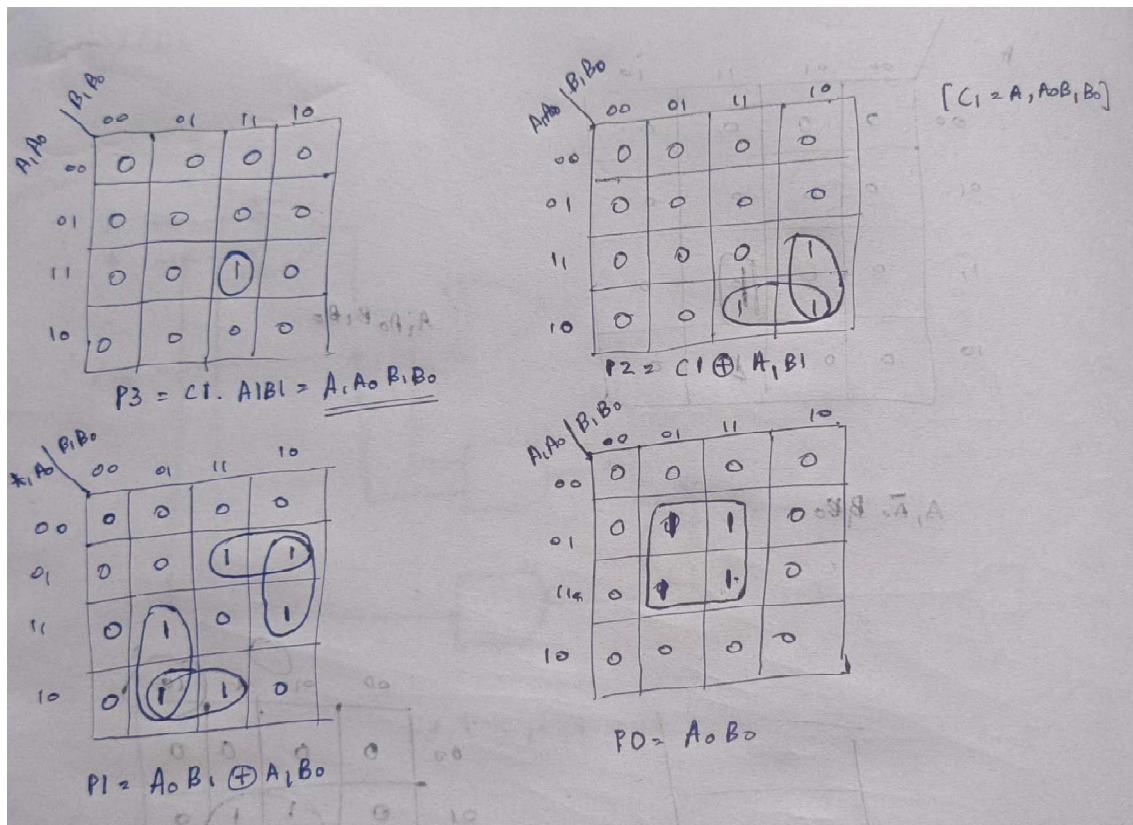 A1A0 \ B1B0
00 01 11 10
00 0 0 0 0
01 0 0 0 0
11 0 0 1 0
10 0 0 0 0
P3 = C1. A1B1 = A1A0 B1B0
A1A0 \ B1B0
00 01 11 10
[C1 = A1A0B1B0]
00 0 0 0 0
01 0 0 0 0
11 0 0 0 1
10 0 0 1 1
P2 = C1 ⊕ A1B1
A1A0 \ B1B0
00 01 11 10
00 0 0 0 0
01 0 0 1 1
11 0 1 0 1
10 0 1 1 0
P1 = A0B1 ⊕ A1B0
A1A0 \ B1B0
00 01 11 10
00 0 0 0 0
01 0 1 1 0
11 0 1 1 0
10 0 0 0 0
P0 = A0B0